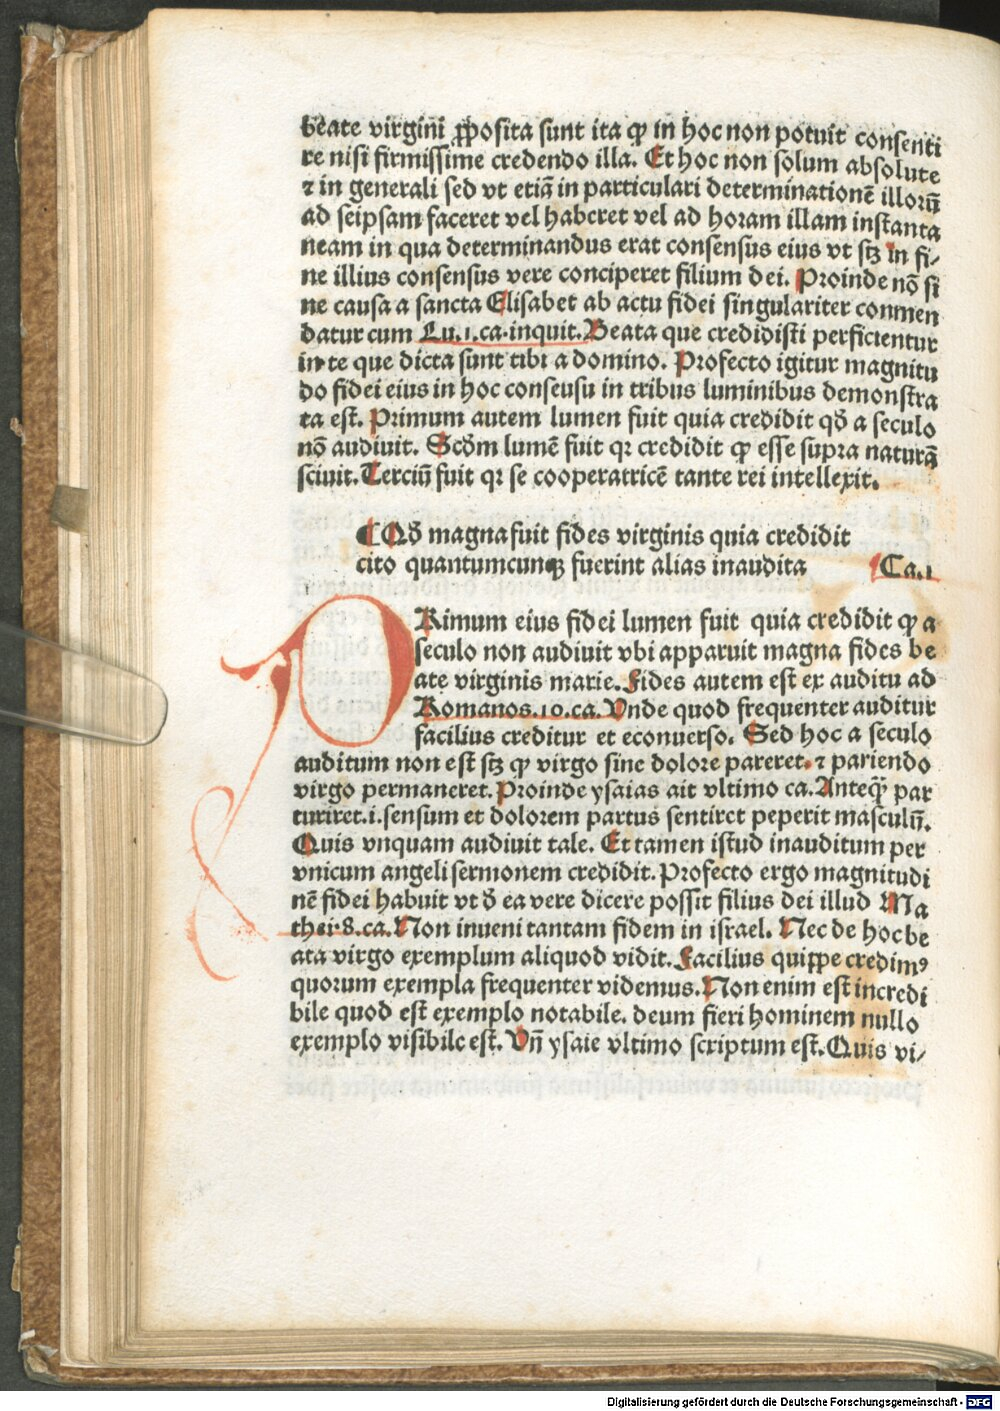 beate virgini ꝓposita sunt ita ꝙ in hoc non potuit consenti
re nisi firmissime credendo illa. Et hoc non solum absolute
⁊ in generali sed vt etiã in particulari determinationē illoꝝ
ad seipsam faceret vel haberet vel ad horam illam instanta
neam in qua determinandus erat consensus eius vt stꝫ in fi⸗
ne illius consensus vere conciperet filium dei. Proinde nō si
ne causa a sancta Elisabet ab actu fidei singulariter conmen
datur cum Lu.1.ca.inquit. Beata que credidisti perficientur
in te que dicta sunt tibi a domino. Profecto igitur magnitu
do fidei eius in hoc conseusu in tribus luminibus demonstra
ta est. Primum autem lumen fuit quia credidit qđ a seculo
nō audiuit. Scđm lumē fuit qꝛ credidit ꝙ esse supra naturã
sciuit. Terciū fuit qꝛ se cooperatricē tante rei intellexit.
¶ Qđ magna fuit fides virginis quia credidit
cito quantumcunqꝫ fuerint alias inaudita Ca.1
PRimum eius fidei lumen fuit quia credidit ꝙ a
seculo non audiuit vbi apparuit magna fides be
ate virginis marie. Fides autem est ex auditu ad
Romanos.10.ca. Vnde quod frequenter auditur
facilius creditur et econuerso. Sed hoc a seculo
auditum non est stꝫ ꝙ virgo sine dolore pareret. ⁊ pariendo
virgo permaneret. Proinde ysaias ait vltimo ca. Anteq̃ par
turiret.i.sensum et dolorem partus sentiret peperit masculū.
Quis vnquam audiuit tale. Et tamen istud inauditum per
vnicum angeli sermonem credidit. Profecto ergo magnitudi
nē fidei habuit vt đ ea vere dicere possit filius dei illud Ma
thei.8.ca. Non inueni tantam fidem in israel. Nec de hoc be
ata virgo exemplum aliquod vidit. Facilius quippe credimꝰ
quorum exempla frequenter videmus. Non enim est incredi
bile quod est exemplo notabile. deum fieri hominem nullo
exemplo visibile est. Vñ ysaie vltimo scriptum est. Quis vi⸗
Digitalisierung gefördert durch die Deutsche Forschungsgemeinschaft - DFG